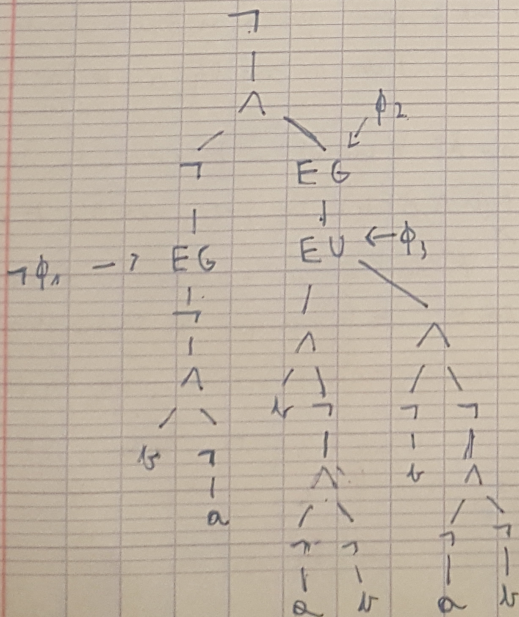 ¬
∧ ϕ2
¬ EG
¬ϕ1 → EG EU ← ϕ3
¬ ∧ ∧
∧ b ¬ ¬ ¬
b ¬ ∧ b ∧
a ¬ ¬ ¬ ¬
a b a b